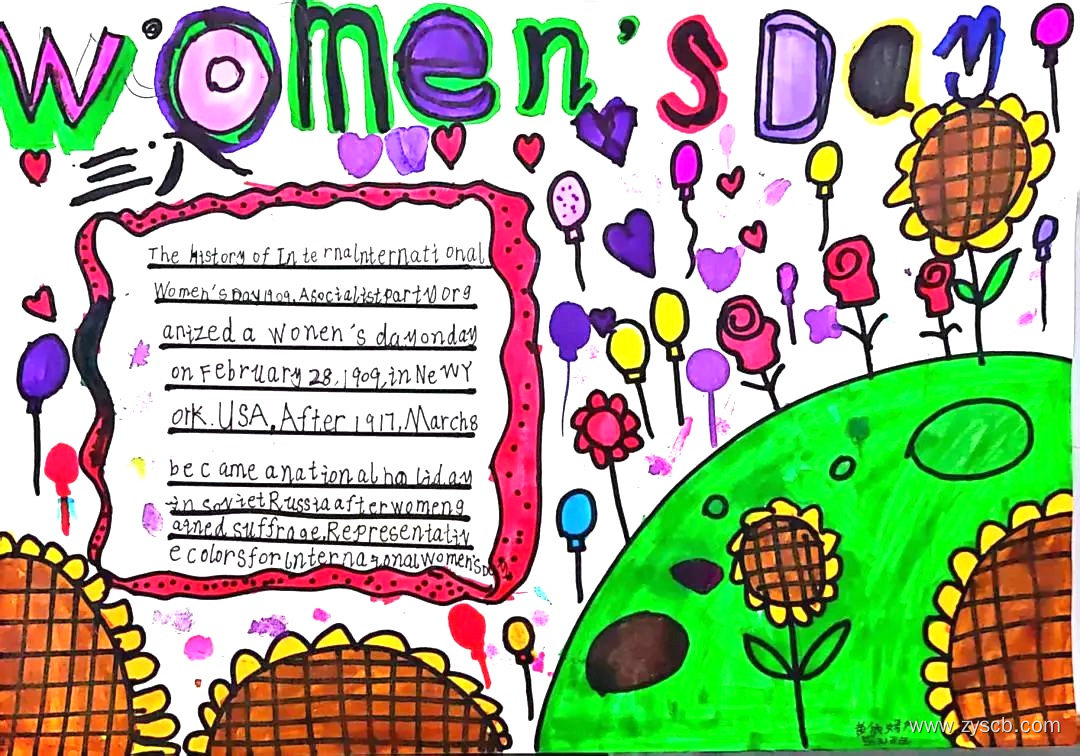 Women's Day
三八
The History of In te rnaInternati onal
Women's Day1909, A socialist party org
anized a wonen's dayonday
on February 28, 1909, in NeWY
ork. USA. After 1917, March8
be c ame a national ho liday
in soviet Russia after womeng
ained suffrage. Representativ
e colors for International Women's Day
www.zyscb.com